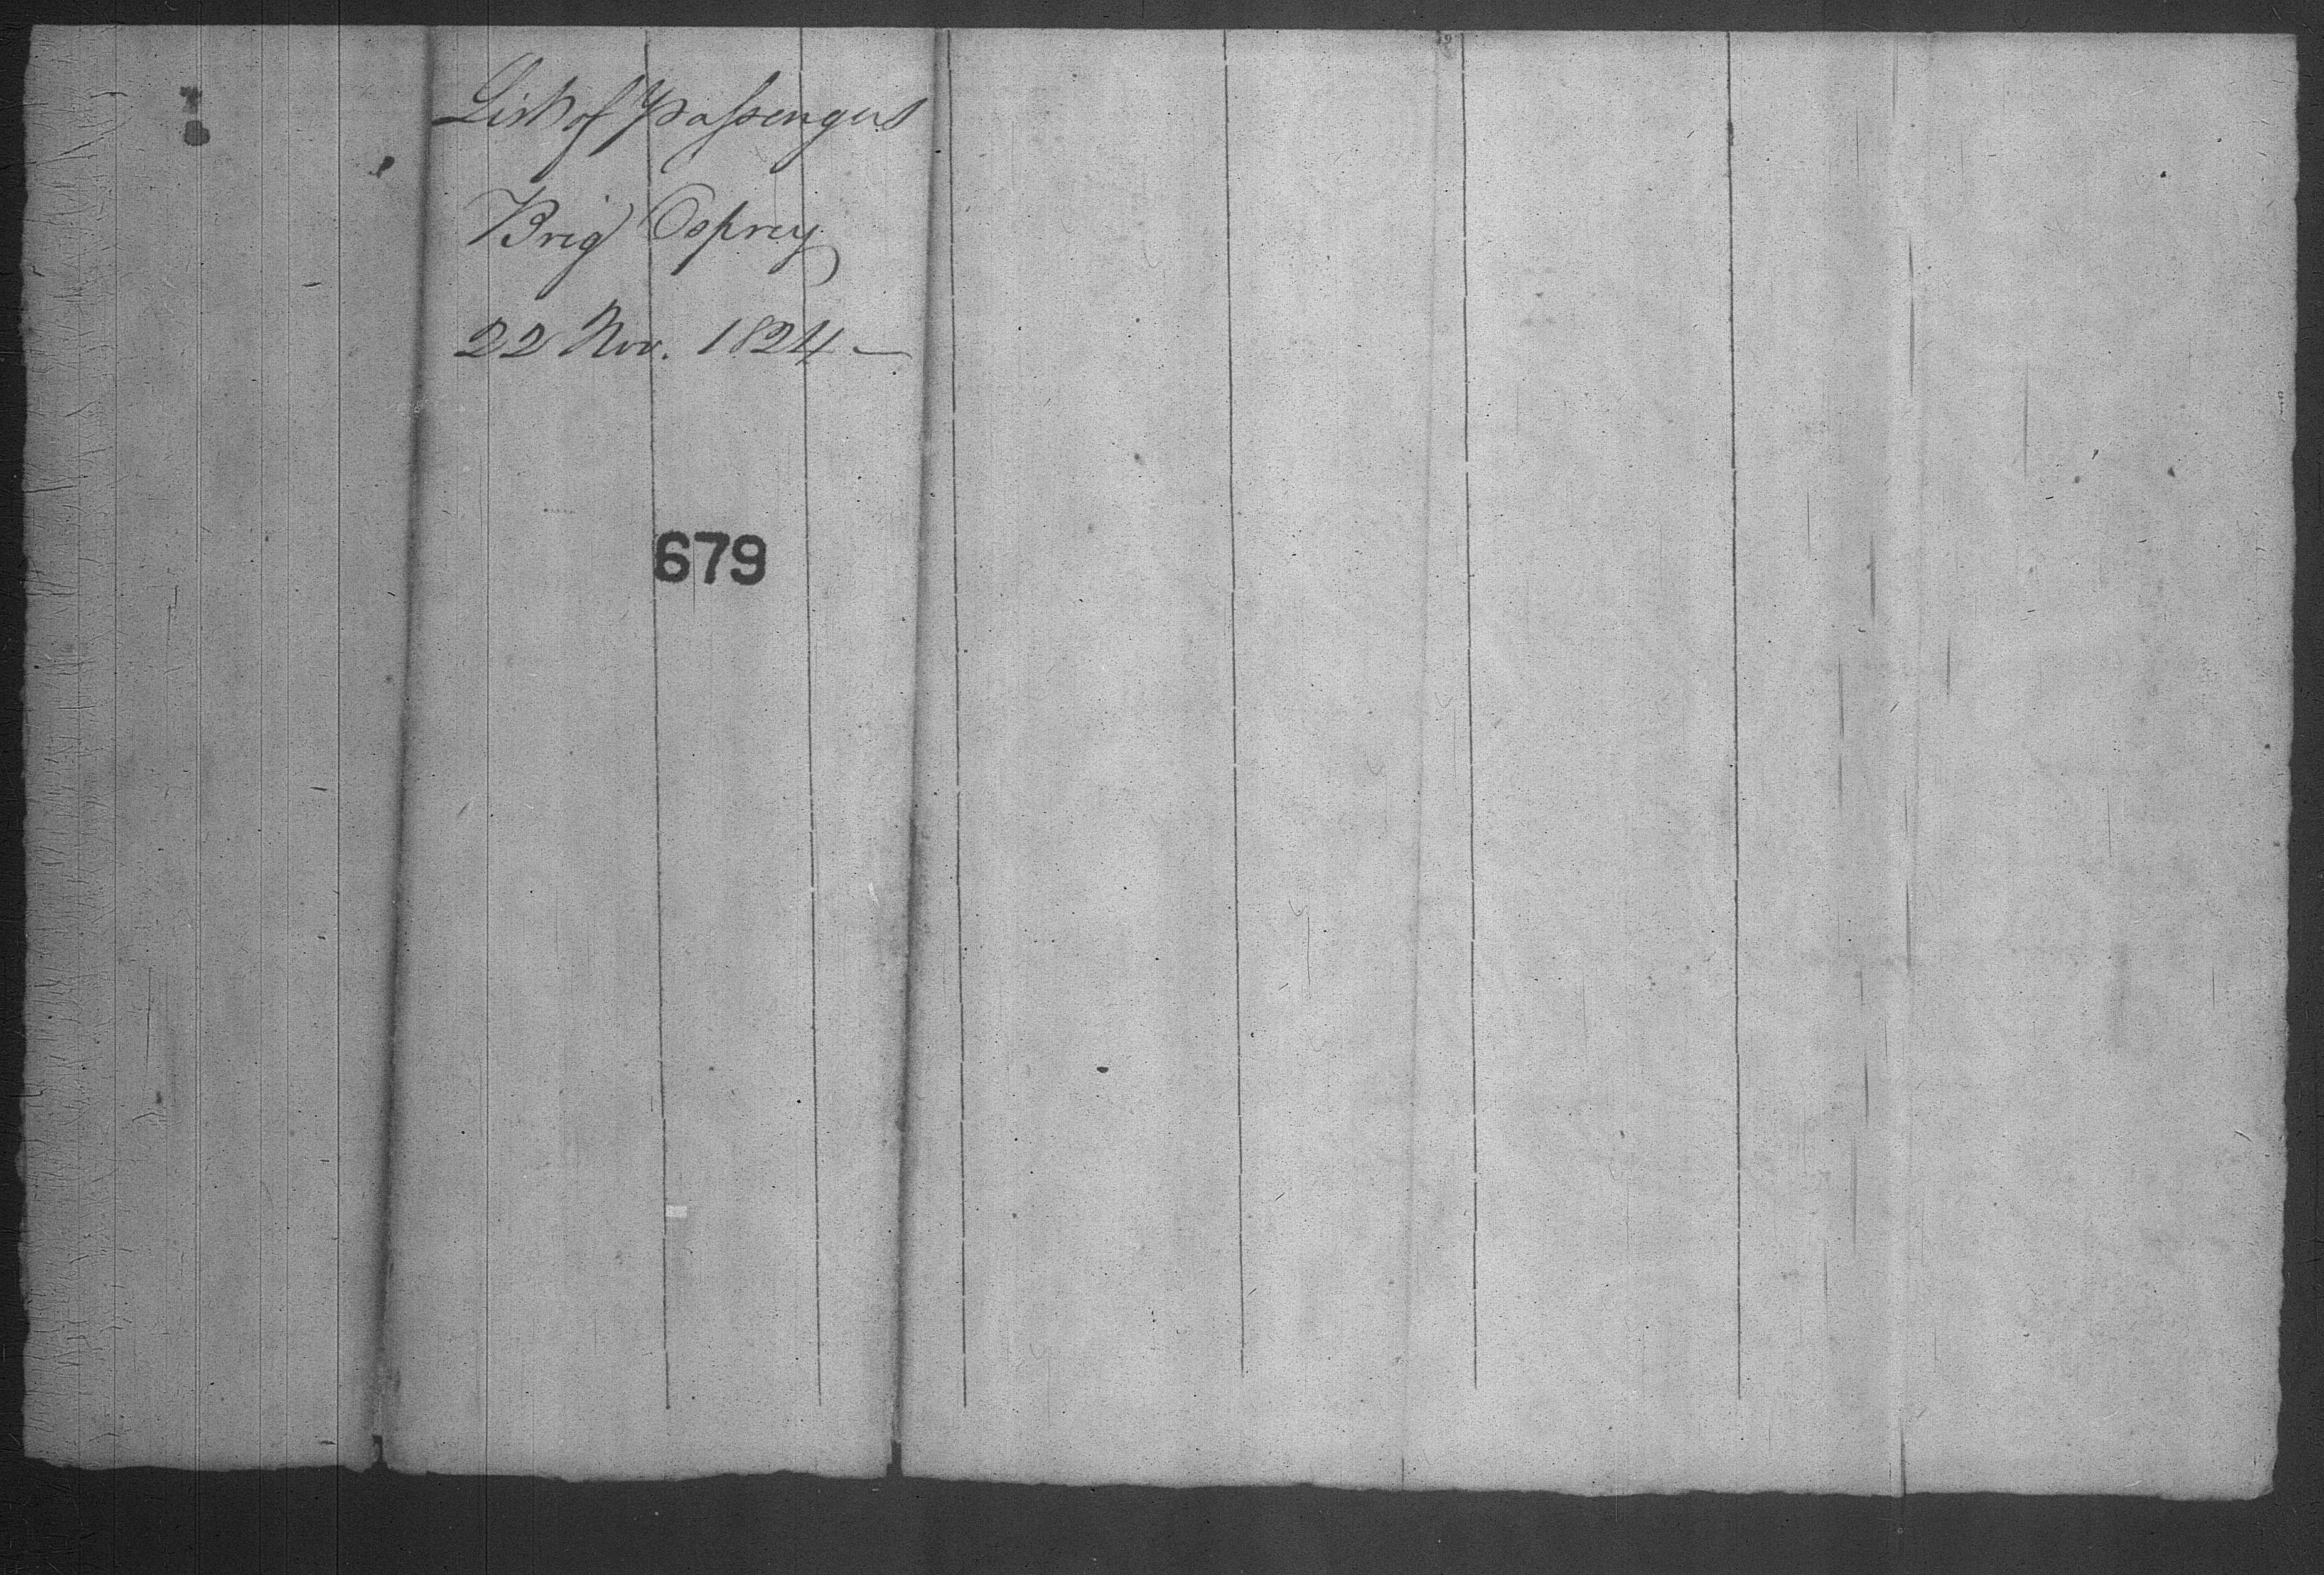 List of Passengers
Brig Osprey
22 Nov. 1824 —
679